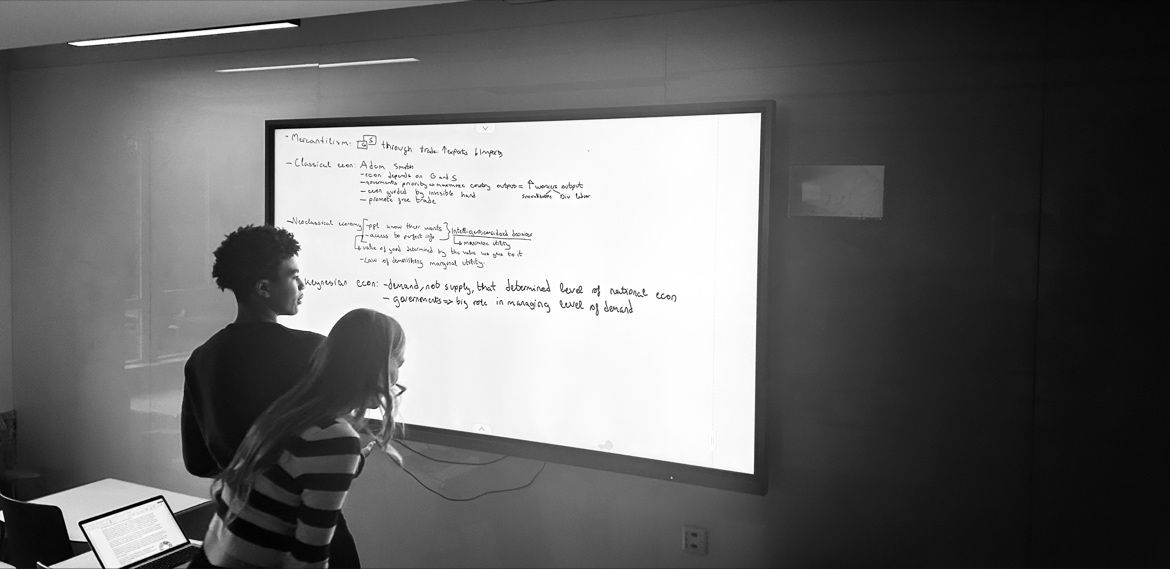 - Mercantilism: G S through trade ↑exports ↓imports
- Classical econ: Adam Smith
- econ depends on G and S
- governments priority => maximize country output = ↑ workers output
Div labor
- econ guided by invisible hand
- promote free trade
- Neoclassical economy - ppl know their wants
- access to perfect info
↳ maximize utility
↳ value of good determined by the value we give to it
- Law of diminishing marginal utility.
Keynesian econ: - demand, not supply, that determined level of national econ
- governments => big role in managing level of demand